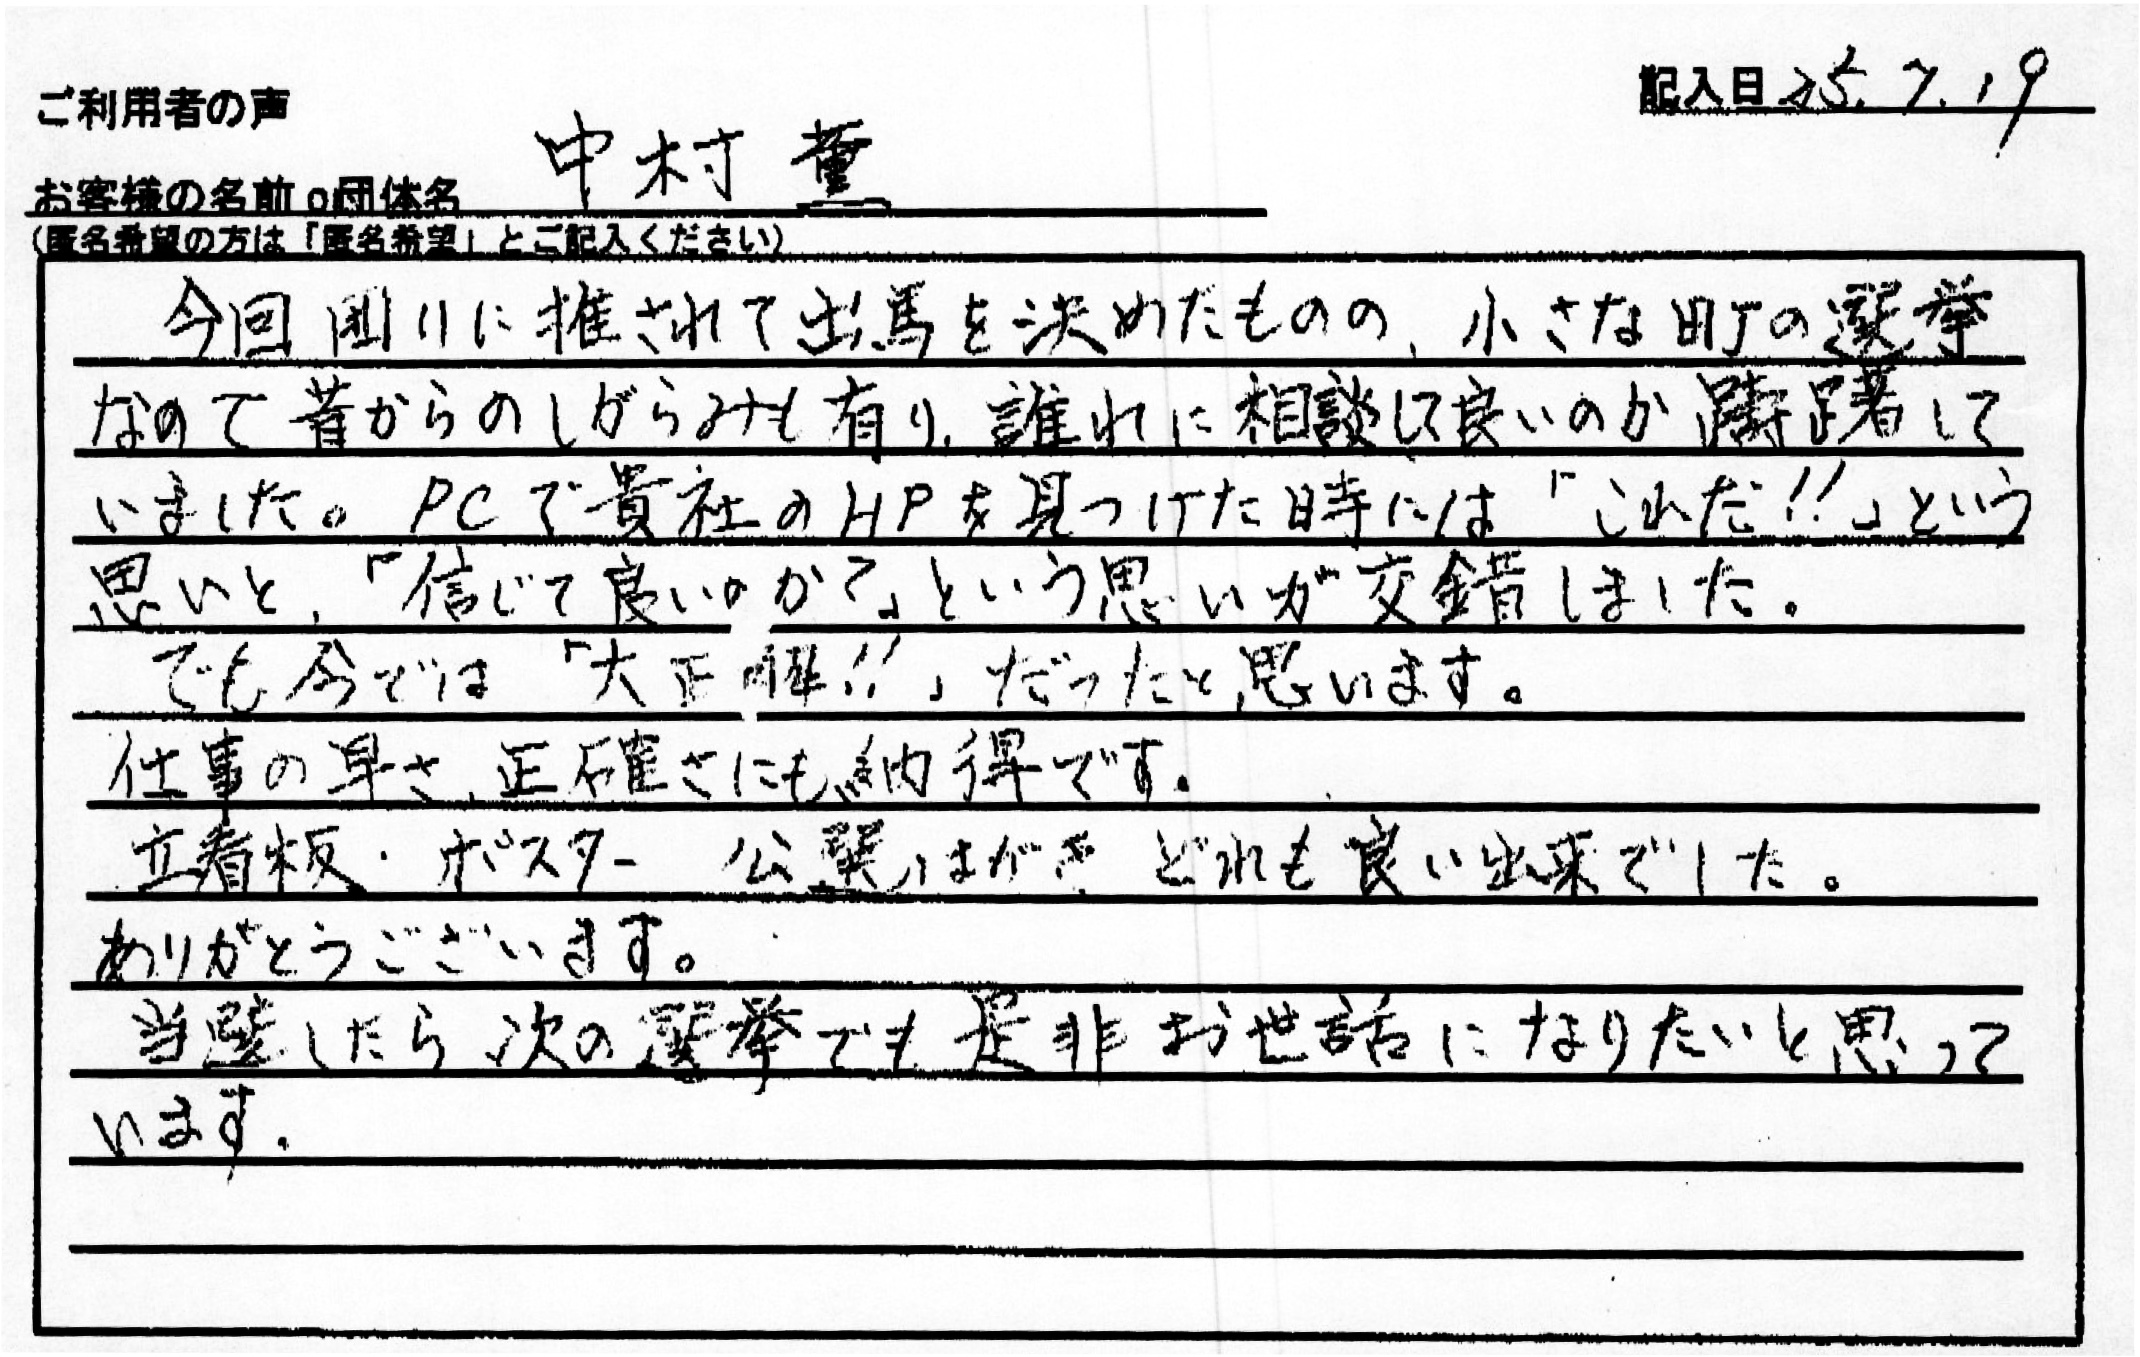 ご利用者の声
記入日 25.7.19
お客様の名前o団体名 中村 薫
(匿名希望の方は「匿名希望」とご記入ください)
今回周りに推されて出馬を決めたものの、小さな町の選挙
なので昔からのしがらみも有り、誰れに相談して良いのか躊躇して
いました。PCで貴社のHPを見つけた時には「これだ!!」という
思いと、「信じて良いのか?」という思いが交錯しました。
でも今では「大正解!!」だったと思います。
仕事の早さ、正確さにも納得です。
立看板・ポスター 公選はがき どれも良い出来でした。
ありがとうございます。
当選したら次の選挙でも是非お世話になりたいと思って
います.